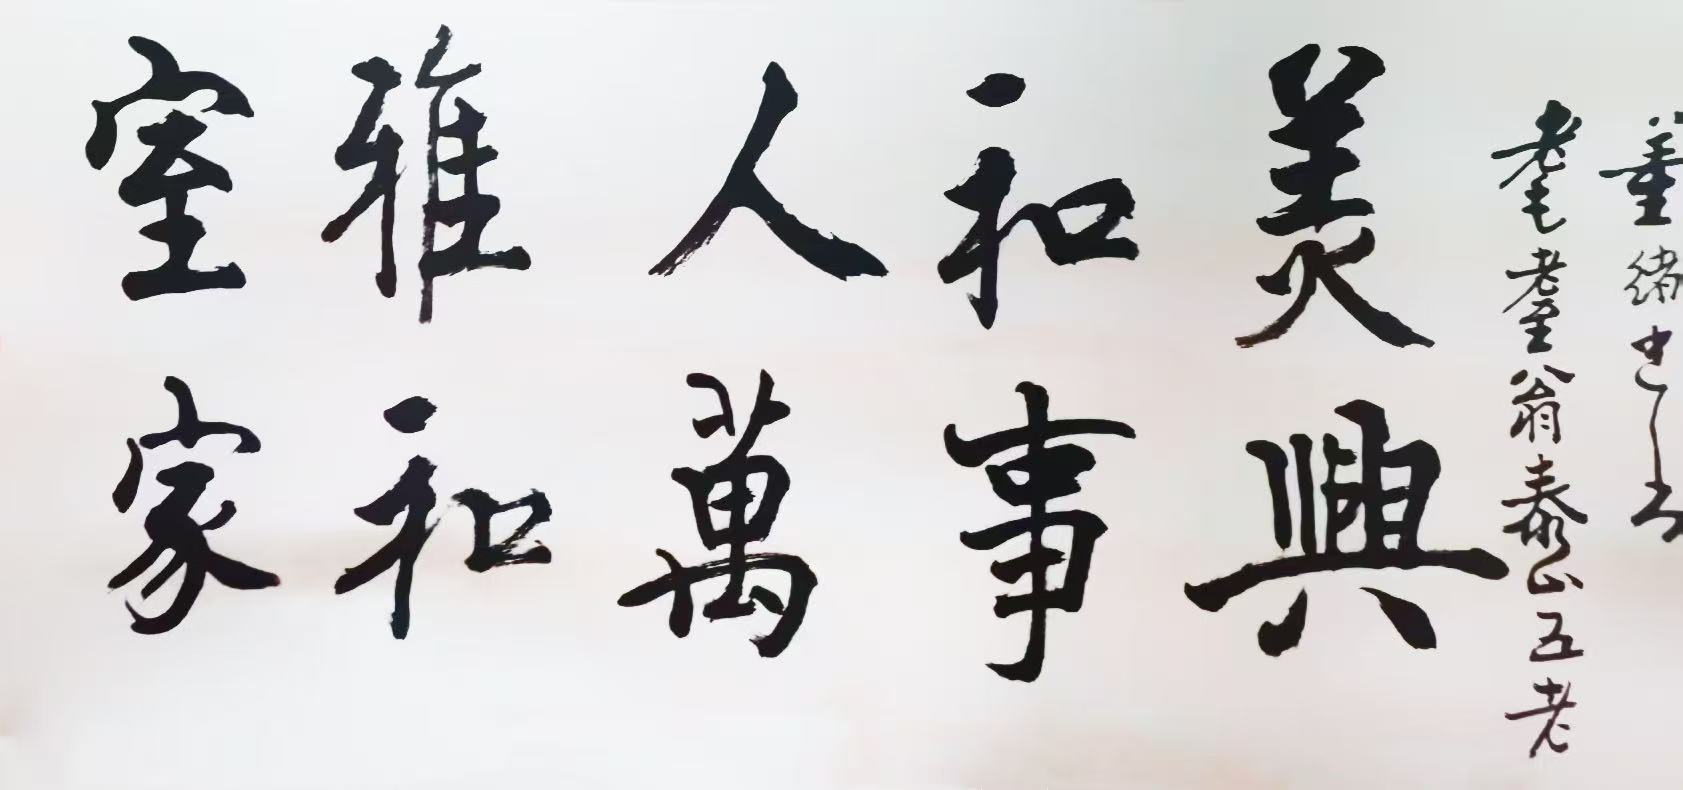 室雅人和美
家和萬事興
耄耋翁泰山五老
董緒